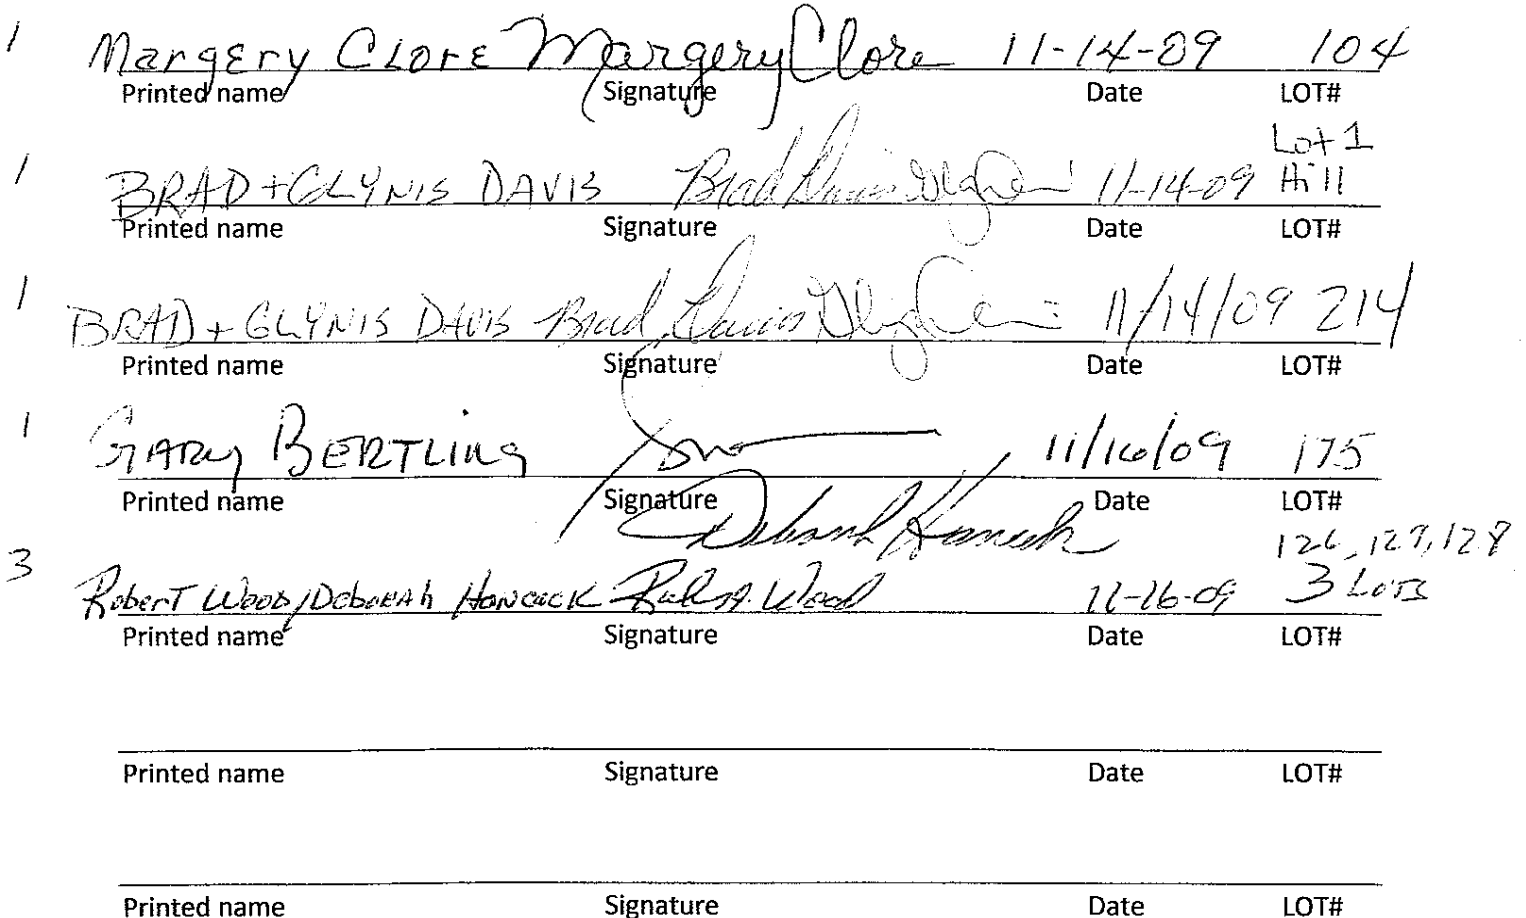 1 Margery Clore Margery Clore 11-14-09 104
Printed name Signature Date LOT#
Lot 1
1 BRAD + GLYNIS DAVIS Brad Davis 11-14-09 Hill
Printed name Signature Date LOT#
1 BRAD + GLYNIS DAVIS Brad Davis 11/14/09 214
Printed name Signature Date LOT#
1 GARY BERTLING 11/16/09 175
Printed name Signature Date LOT#
Deborah Hancock 126, 127, 128
3 Robert Wood/Deborah Hancock Robt A. Wood 11-16-09 3 Lots
Printed name Signature Date LOT#
Printed name Signature Date LOT#
Printed name Signature Date LOT#